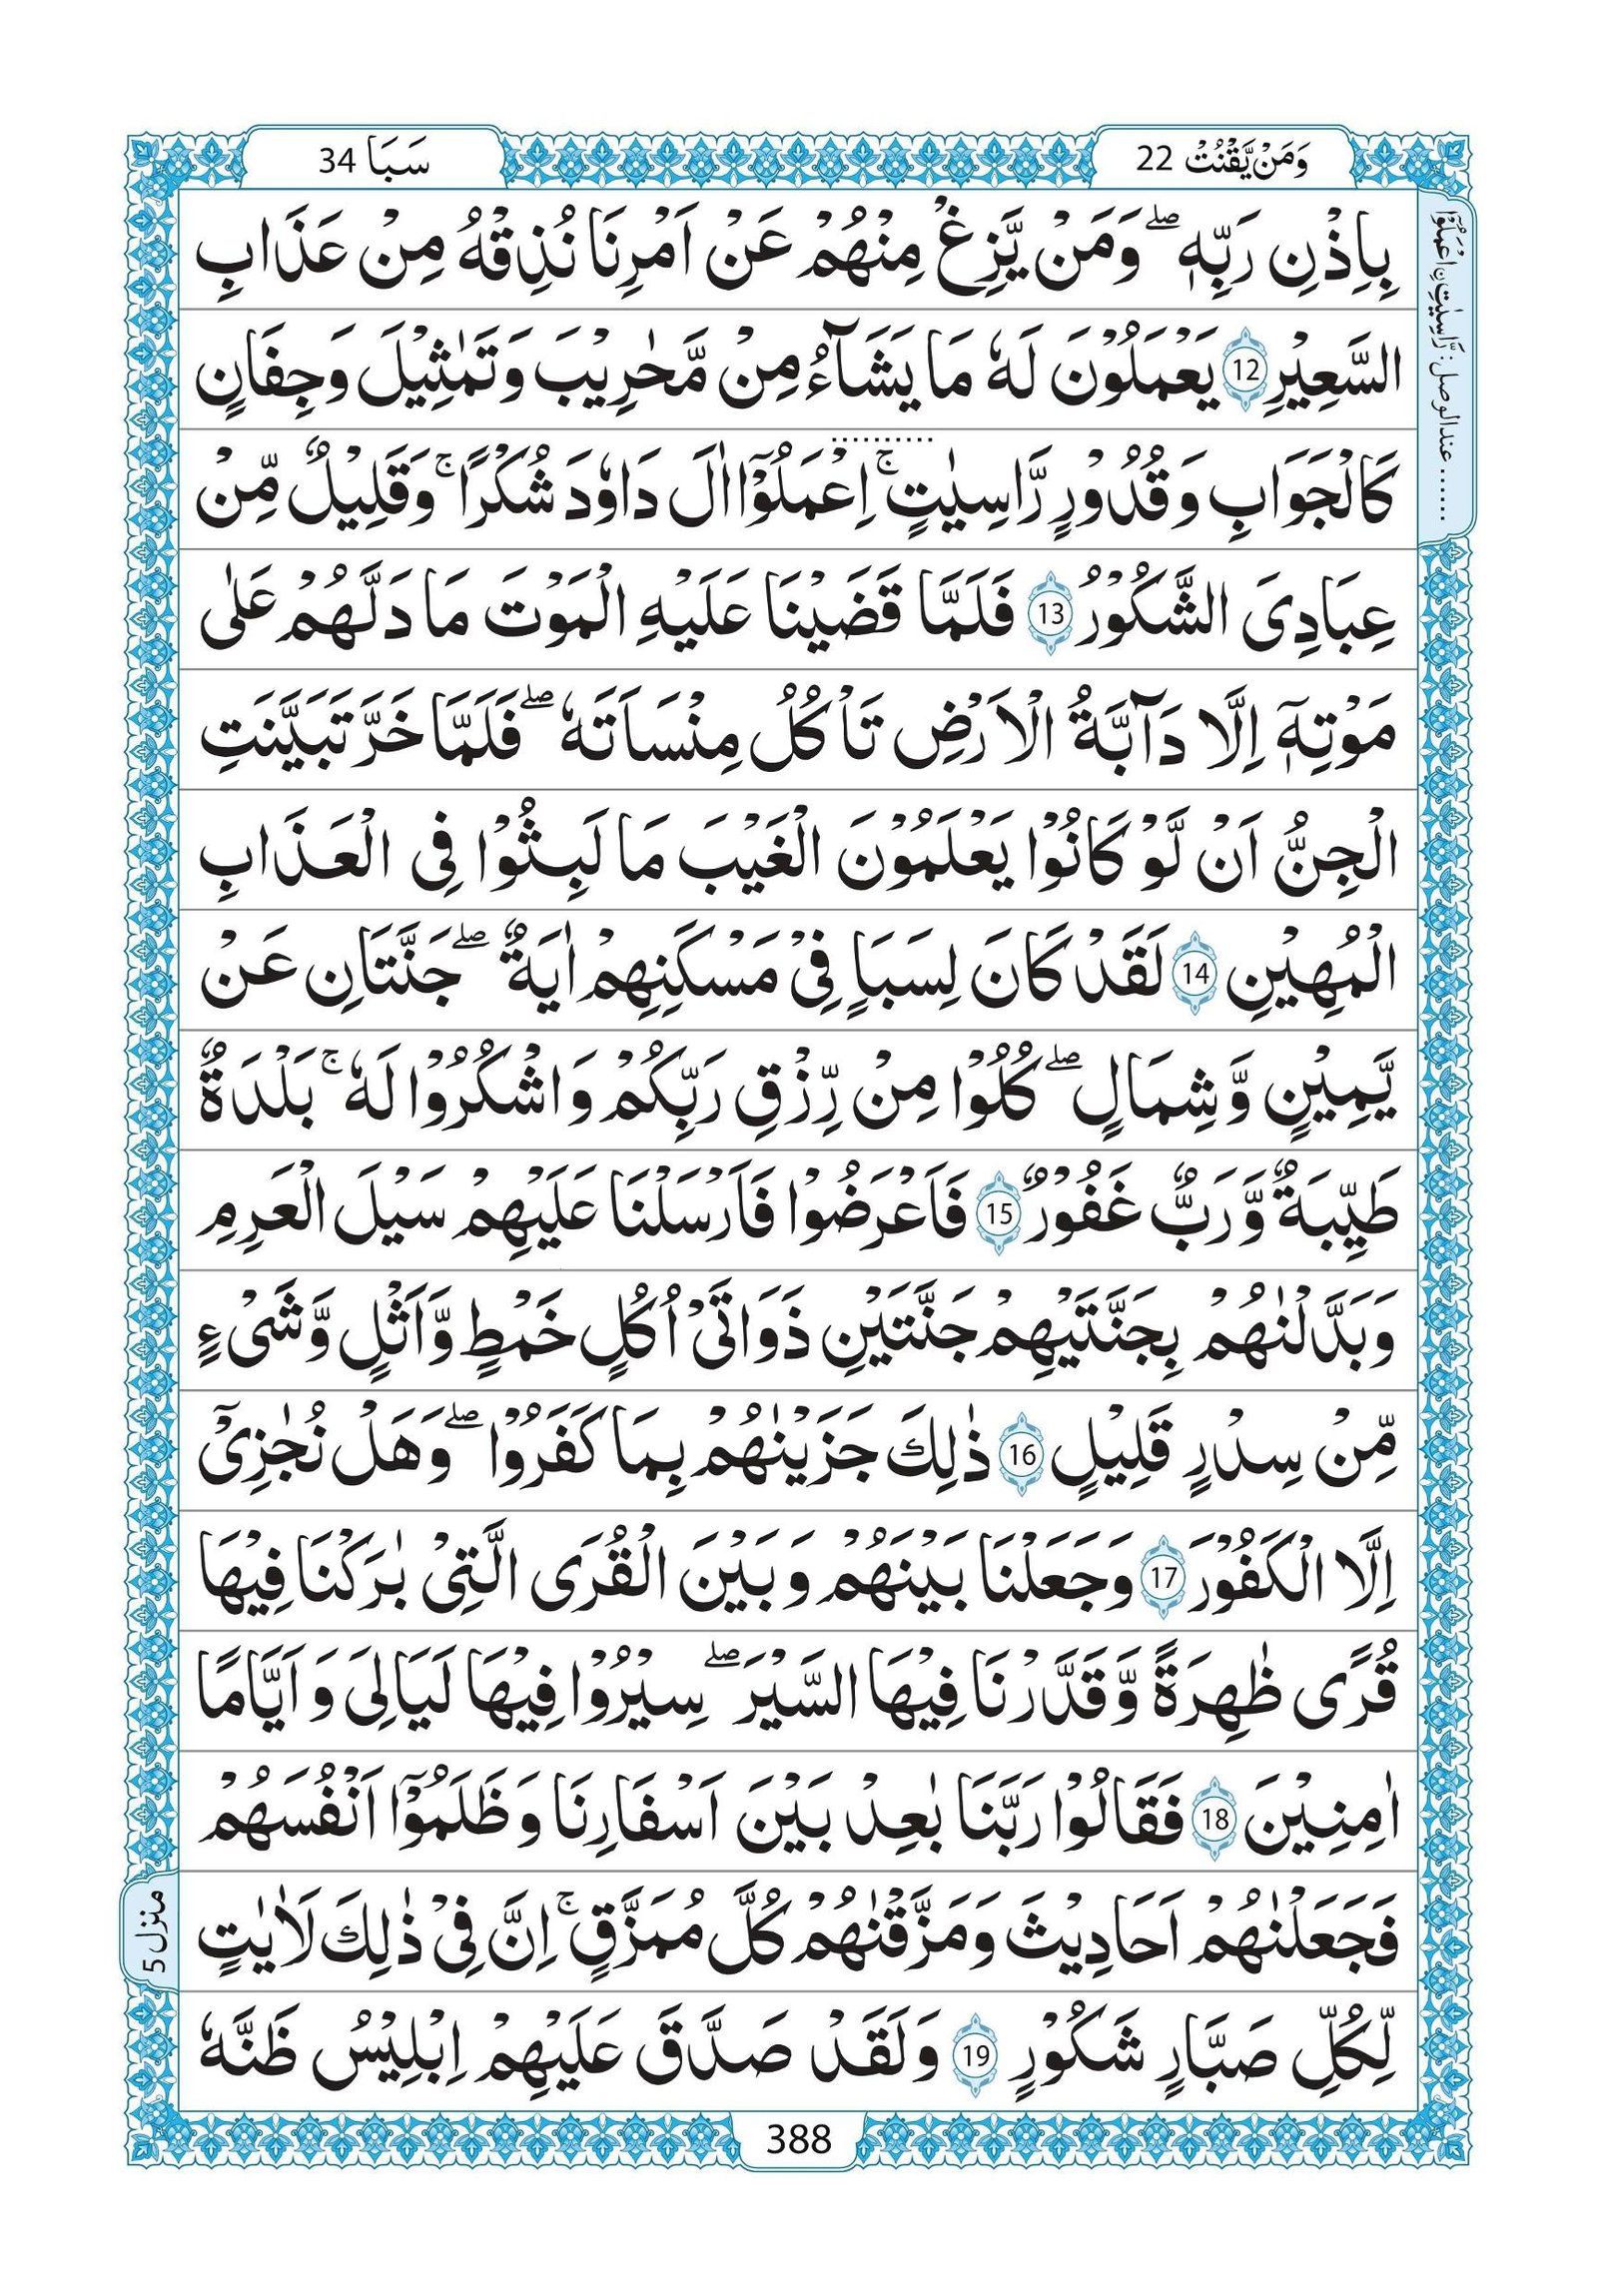 وَمَنْ يَّقْنُتْ 22
سَبَا 34
بِاِذْنِ رَبِّهٖ ؕ وَمَنْ يَّزِغْ مِنْهُمْ عَنْ اَمْرِنَا نُذِقْهُ مِنْ عَذَابِ
السَّعِيْرِ 12 يَعْمَلُوْنَ لَهٗ مَا يَشَآءُ مِنْ مَّحٰرِيْبَ وَتَمٰثِيْلَ وَجِفَانٍ
كَالْجَوَابِ وَقُدُوْرٍ رّٰسِيٰتٍ ۚ اِعْمَلُوْٓا اٰلَ دَاوٗدَ شُكْرًا ۚ وَقَلِيْلٌ مِّنْ
عِبَادِىَ الشَّكُوْرُ 13 فَلَمَّا قَضَيْنَا عَلَيْهِ الْمَوْتَ مَا دَلَّهُمْ عَلٰى
مَوْتِهٖٓ اِلَّا دَآبَّةُ الْاَرْضِ تَاْكُلُ مِنْسَاَتَهٗ ۖ فَلَمَّا خَرَّ تَبَيَّنَتِ
الْجِنُّ اَنْ لَّوْ كَانُوْا يَعْلَمُوْنَ الْغَيْبَ مَا لَبِثُوْا فِى الْعَذَابِ
الْمُهِيْنِ 14 لَقَدْ كَانَ لِسَبَاٍ فِىْ مَسْكَنِهِمْ اٰيَةٌ ۖ جَنَّتَانِ عَنْ
يَّمِيْنٍ وَّشِمَالٍ ۖ كُلُوْا مِنْ رِّزْقِ رَبِّكُمْ وَاشْكُرُوْا لَهٗ ۚ بَلْدَةٌ
طَيِّبَةٌ وَّرَبٌّ غَفُوْرٌ 15 فَاَعْرَضُوْا فَاَرْسَلْنَا عَلَيْهِمْ سَيْلَ الْعَرِمِ
وَبَدَّلْنٰهُمْ بِجَنَّتَيْهِمْ جَنَّتَيْنِ ذَوَاتَىْ اُكُلٍ خَمْطٍ وَّاَثْلٍ وَّشَىْءٍ
مِّنْ سِدْرٍ قَلِيْلٍ 16 ذٰلِكَ جَزَيْنٰهُمْ بِمَا كَفَرُوْا ۖ وَهَلْ نُجٰزِىْٓ
اِلَّا الْكَفُوْرَ 17 وَجَعَلْنَا بَيْنَهُمْ وَبَيْنَ الْقُرَى الَّتِىْ بٰرَكْنَا فِيْهَا
قُرًى ظٰهِرَةً وَّقَدَّرْنَا فِيْهَا السَّيْرَ ۖ سِيْرُوْا فِيْهَا لَيَالِىَ وَاَيَّامًا
اٰمِنِيْنَ 18 فَقَالُوْا رَبَّنَا بٰعِدْ بَيْنَ اَسْفَارِنَا وَظَلَمُوْٓا اَنْفُسَهُمْ
فَجَعَلْنٰهُمْ اَحَادِيْثَ وَمَزَّقْنٰهُمْ كُلَّ مُمَزَّقٍ ۚ اِنَّ فِىْ ذٰلِكَ لَاٰيٰتٍ
لِّكُلِّ صَبَّارٍ شَكُوْرٍ 19 وَلَقَدْ صَدَّقَ عَلَيْهِمْ اِبْلِيْسُ ظَنَّهٗ
عندالوصل : رّٰسِيٰتِنِ اعْمَلُوْٓا
منزل 5
388